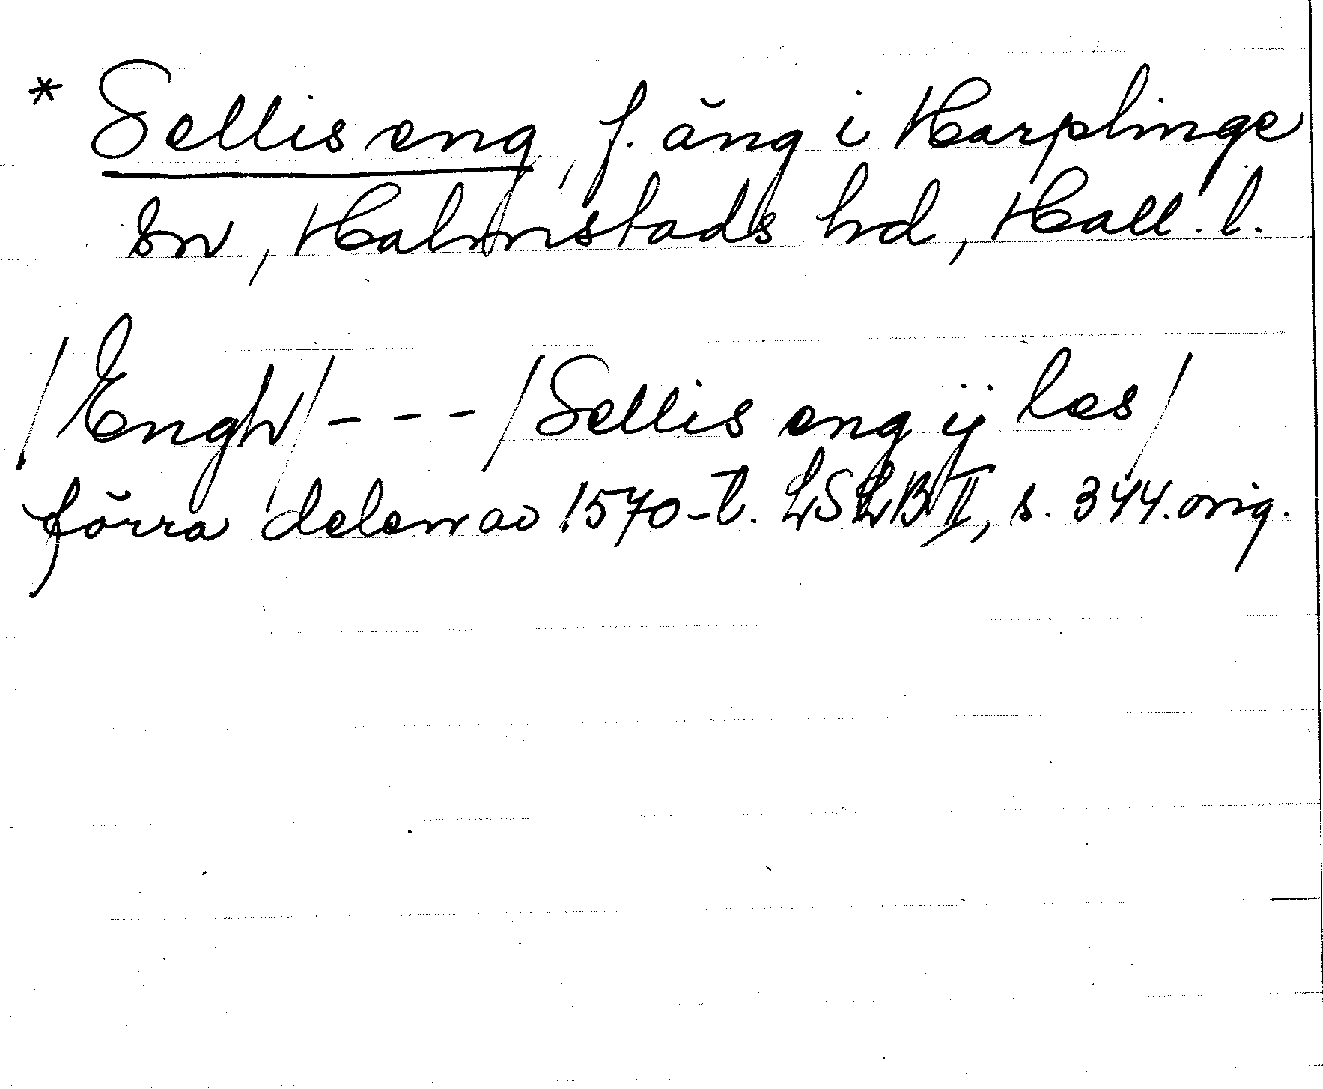 * Sellis eng, f. äng i Harplinge
sn, Halmstads hd, Hall. l.
/Engh/ - - - /Sellis eng ij les/
förra delen av 1570-t. LSLB II, s. 344. orig.